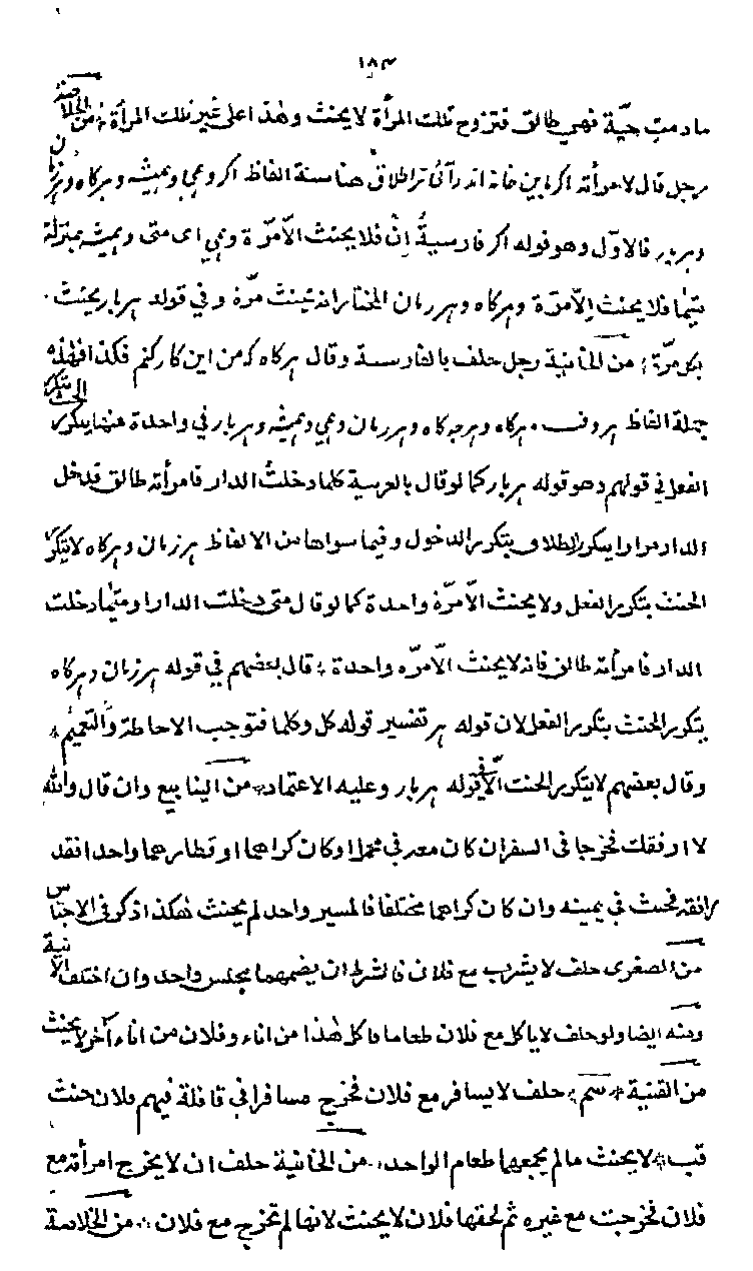 ١٨٣
مادمت حيّة فهي طالق فتزوج تلك المرأة لا يحنث وهذا على غير تلك المرأة ؛ من الخلاصة
رجل قال لامرأته اكر باين خانه اندر آئى تراطلاق هنا ستة الفاظ اكر وهمى وهميشه وهركاه وهرزمان
وهربار فالاول وهو قوله اكر فارسية إن فلا يحنث الّا مرّة وهمى اى متى وهميشه بمنزلة
متىما فلا يحنث إلّا مرّة وهركاه وهرزمان المختار انه يحنث مرّة وفي قوله هربار يحنث
بكل مرّة ؛ من الخانية رجل حلف بالفارسية وقال هركاه كه من اين كار كنم فكذا فهذه
جملة الفاظ هروقت هركاه وهرجه كاه وهرزمان وهمى وهميشه وهربار في واحدة منها يتكرر الحنث بتكرر
الفعل في قولهم وهو قوله هربار كما لو قال بالعربية كلما دخلتُ الدار فامرأته طالق فدخل
الدار مرارا يتكرر الطلاق بتكرر الدخول وفيما سواها من الالفاظ هرزمان وهركاه لا يتكرر
الحنث بتكرر الفعل ولا يحنث الّا مرّة واحدة كما لو قال متى دخلت الدار او متىما دخلت
الدار فامرأته طالق فانه لا يحنث الّا مرّه واحدة ؛ قال بعضهم في قوله هرزمان وهركاه
يتكرر الحنث بتكرر الفعل لان قوله هر تفسير قوله كل وكلما فتوجب الاحاطة والتعميم ؛
وقال بعضهم لا يتكرر الحنث الّا في قوله هربار وعليه الاعتماد ؛ من الينابيع وان قال والله
لا ارفقك فخرجا في السفر ان كان معه في محمل او كان كراهما او قطارهما واحدا فقد
رافقه فحنث في يمينه وان كان كراهما مختلفا فالمسير واحد لم يحنث هكذا ذكر في الاجناس
من الصغرى حلف لا يشرب مع فلان فالشرط ان يضمهما مجلس واحد وان اختلف الآنية
ومنه ايضا ولو حلف لا ياكل مع فلان طعاما فاكل هذا من اناء وفلان من اناء آخر لا يحنث
من القنية ؛ سم ؛ حلف لا يسافر مع فلان فخرج مسافرا في قافلة فيهم فلان حنث
قب ؛ لا يحنث مالم يجمعهما طعام الواحد ؛ من الخانية حلف ان لا يخرج امرأته مع
فلان فخرجت مع غيره ثم لحقها فلان لا يحنث لانها لم تخرج مع فلان ؛ من الخلاصة